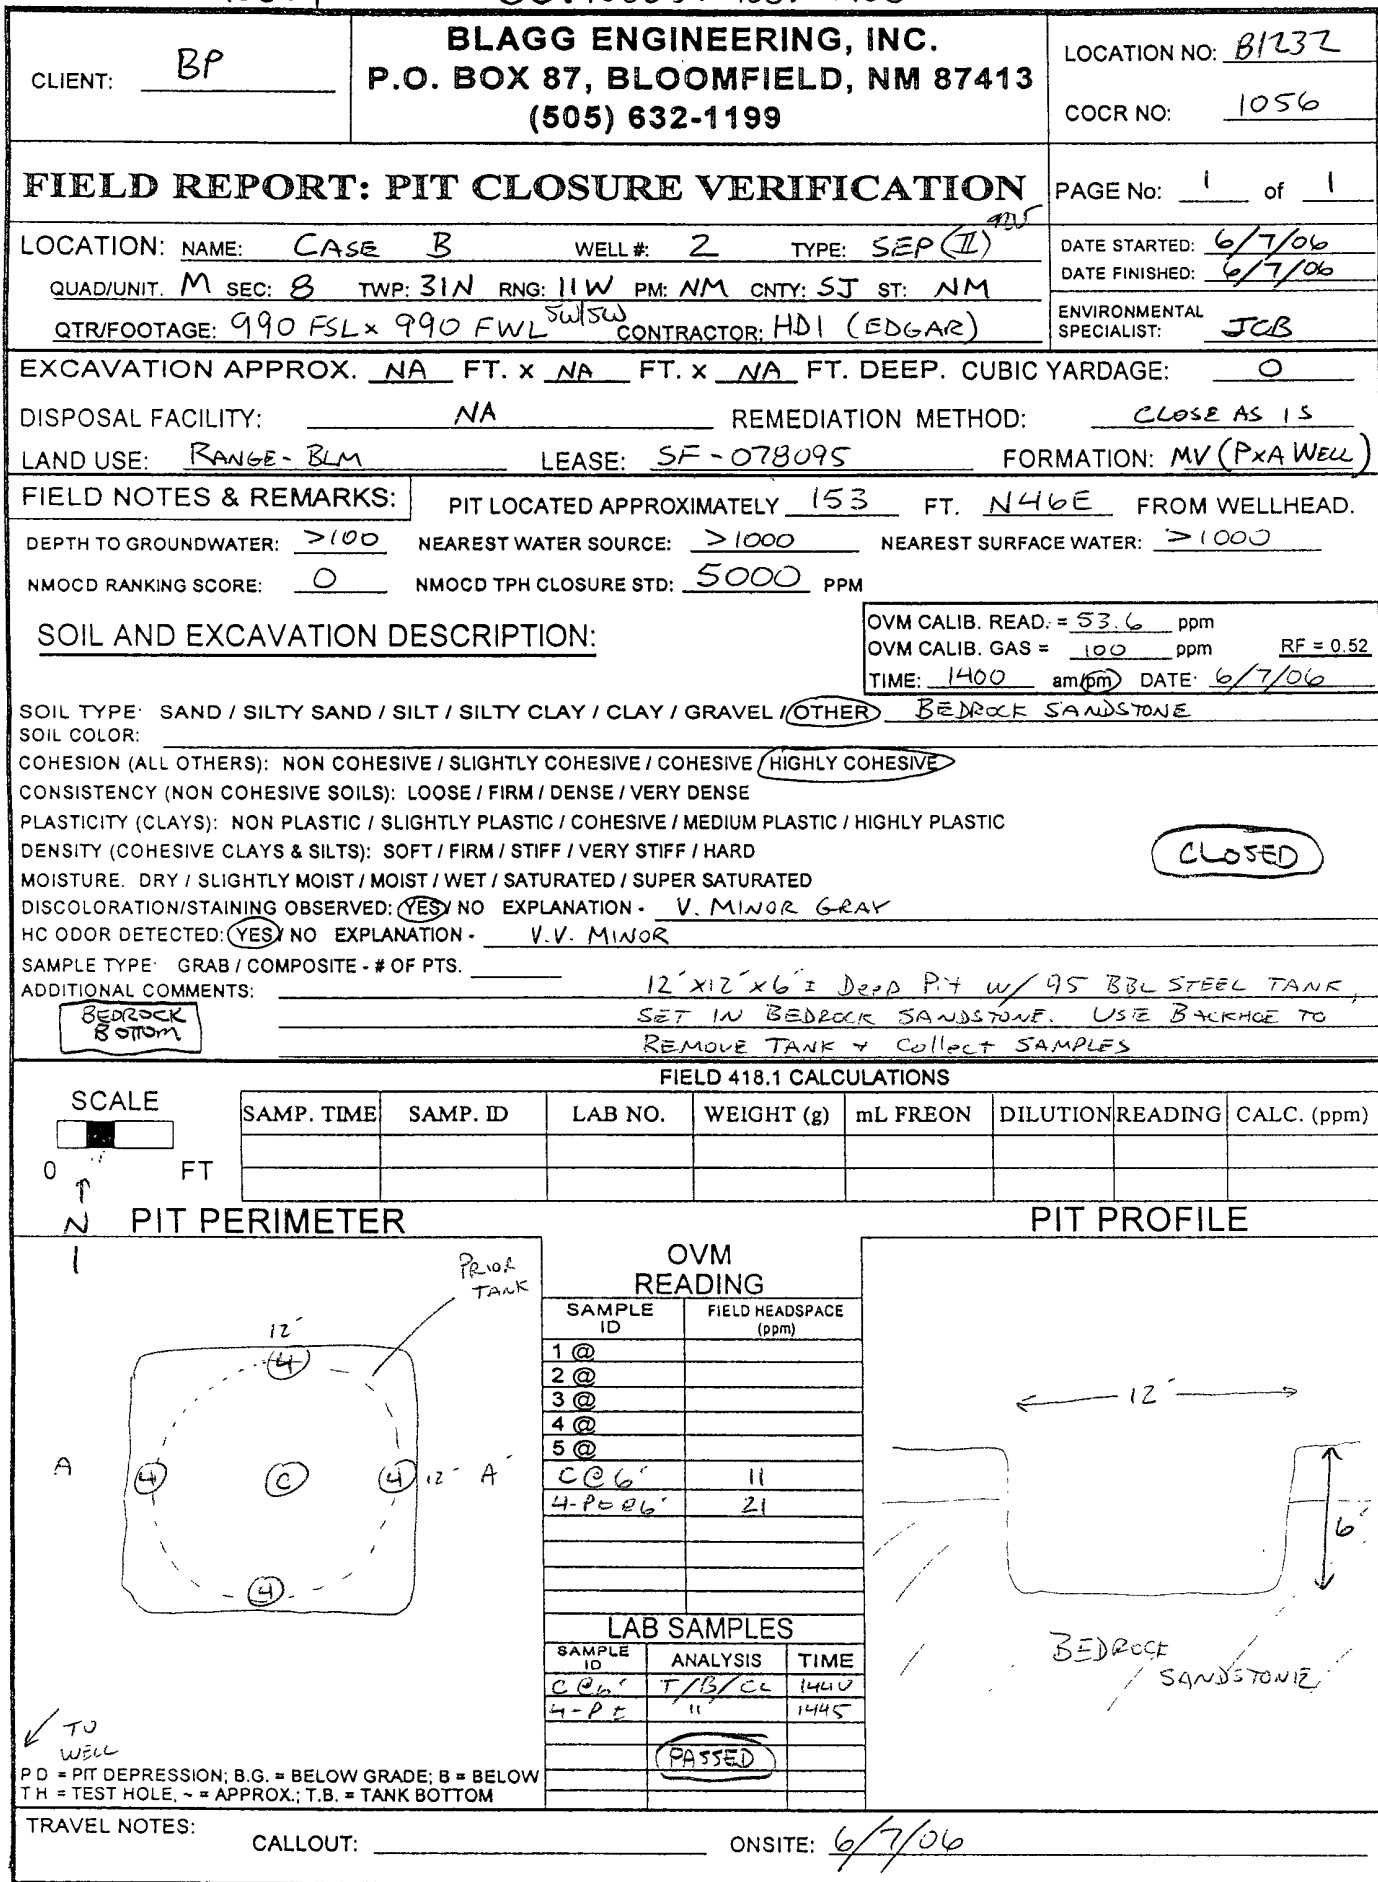 BLAGG ENGINEERING, INC.
P.O. BOX 87, BLOOMFIELD, NM 87413
(505) 632-1199
CLIENT: BP
LOCATION NO: B1232
COCR NO: 1056
FIELD REPORT: PIT CLOSURE VERIFICATION
PAGE No: 1 of 1
LOCATION: NAME: CASE B WELL #: 2 TYPE: SEP (II)
QUAD/UNIT. M SEC: 8 TWP: 31N RNG: 11W PM: NM CNTY: SJ ST: NM
QTR/FOOTAGE: 990 FSL x 990 FWL SW/SW CONTRACTOR: HDI (EDGAR)
DATE STARTED: 6/7/06
DATE FINISHED: 6/7/06
ENVIRONMENTAL
SPECIALIST: JCB
EXCAVATION APPROX. NA FT. x NA FT. x NA FT. DEEP. CUBIC YARDAGE: 0
DISPOSAL FACILITY: NA REMEDIATION METHOD: CLOSE AS IS
LAND USE: RANGE - BLM LEASE: SF - 078095 FORMATION: MV (PxA WELL)
FIELD NOTES & REMARKS: PIT LOCATED APPROXIMATELY 153 FT. N46E FROM WELLHEAD.
DEPTH TO GROUNDWATER: >100 NEAREST WATER SOURCE: >1000 NEAREST SURFACE WATER: >1000
NMOCD RANKING SCORE: 0 NMOCD TPH CLOSURE STD: 5000 PPM
SOIL AND EXCAVATION DESCRIPTION:
OVM CALIB. READ. = 53.6 ppm
OVM CALIB. GAS = 100 ppm RF = 0.52
TIME: 1400 am/pm DATE: 6/7/06
SOIL TYPE: SAND / SILTY SAND / SILT / SILTY CLAY / CLAY / GRAVEL / OTHER BEDROCK SANDSTONE
SOIL COLOR:
COHESION (ALL OTHERS): NON COHESIVE / SLIGHTLY COHESIVE / COHESIVE / HIGHLY COHESIVE
CONSISTENCY (NON COHESIVE SOILS): LOOSE / FIRM / DENSE / VERY DENSE
PLASTICITY (CLAYS): NON PLASTIC / SLIGHTLY PLASTIC / COHESIVE / MEDIUM PLASTIC / HIGHLY PLASTIC
DENSITY (COHESIVE CLAYS & SILTS): SOFT / FIRM / STIFF / VERY STIFF / HARD
CLOSED
MOISTURE. DRY / SLIGHTLY MOIST / MOIST / WET / SATURATED / SUPER SATURATED
DISCOLORATION/STAINING OBSERVED: YES/ NO EXPLANATION - V. MINOR GRAY
HC ODOR DETECTED: YES/ NO EXPLANATION - V.V. MINOR
SAMPLE TYPE: GRAB / COMPOSITE - # OF PTS.
ADDITIONAL COMMENTS: 12' x 12' x 6' ± Deep Pit w/ 95 BBL STEEL TANK,
SET IN BEDROCK SANDSTONE. USE BACKHOE TO
REMOVE TANK & Collect SAMPLES
BEDROCK
BOTTOM
FIELD 418.1 CALCULATIONS
SCALE
0 FT
SAMP. TIME SAMP. ID LAB NO. WEIGHT (g) mL FREON DILUTION READING CALC. (ppm)
N
PIT PERIMETER
PIT PROFILE
PRIOR
TANK
12'
4
A 4 C 4 12' A'
4
TO
WELL
OVM
READING
SAMPLE ID FIELD HEADSPACE (ppm)
1 @
2 @
3 @
4 @
5 @
C @ 6' 11
4-Pt @ 6' 21
LAB SAMPLES
SAMPLE ID ANALYSIS TIME
C @ 6' T/B/CL 1440
4-Pt " 1445
PASSED
12'
6'
BEDROCK
SANDSTONE
P D = PIT DEPRESSION; B.G. = BELOW GRADE; B = BELOW
T H = TEST HOLE, ~ = APPROX.; T.B. = TANK BOTTOM
TRAVEL NOTES:
CALLOUT: ONSITE: 6/7/06